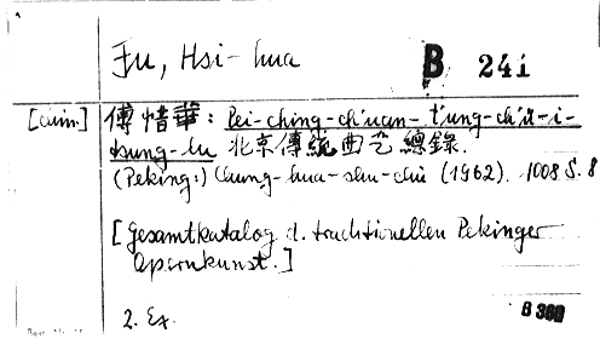 Fu, Hsi-hua B 241
[chin.] 傅惜華: Pei-ching-ch'uan-t'ung-ch'ü-i-
tsung-lu 北京傳統曲芸總錄.
(Peking:) Chung-hua-shu-chü (1962). 1008 S. 8
[Gesamtkatalog d. traditionellen Pekinger
Opernkunst.]
2. Ex. B 360